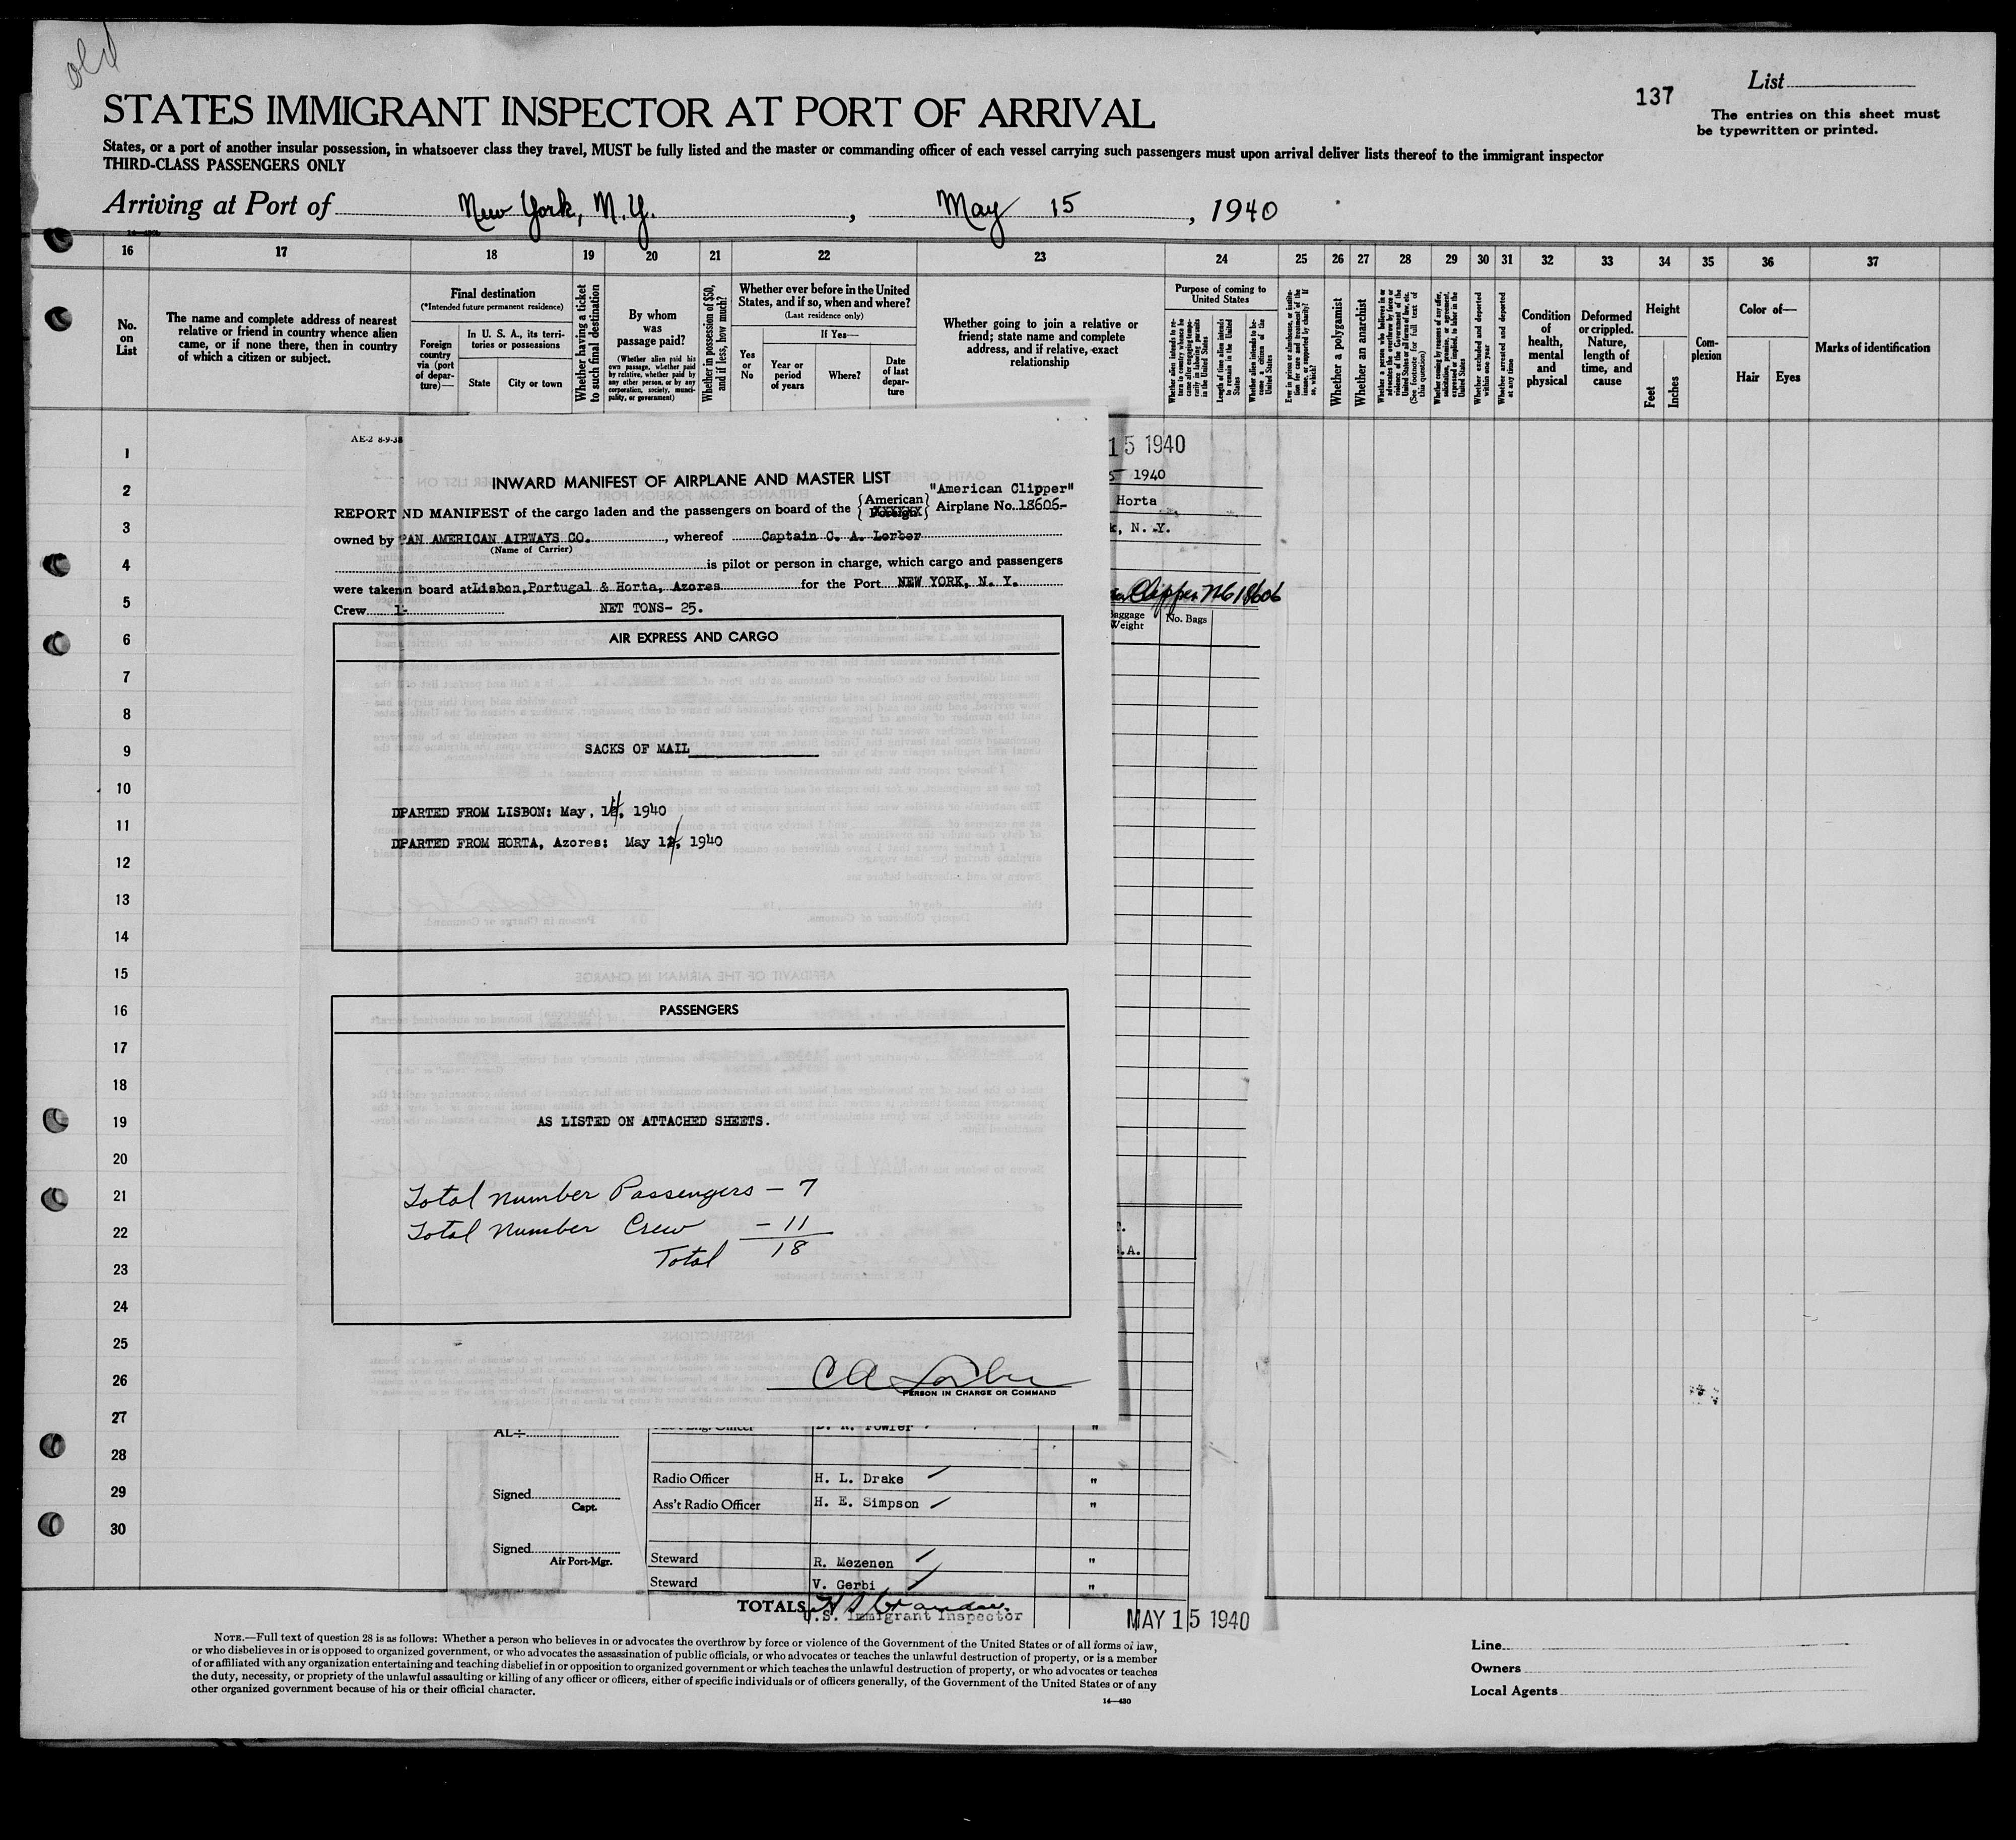 old
137
List
The entries on this sheet must
be typewritten or printed.
STATES IMMIGRANT INSPECTOR AT PORT OF ARRIVAL
States, or a port of another insular possession, in whatsoever class they travel, MUST be fully listed and the master or commanding officer of each vessel carrying such passengers must upon arrival deliver lists thereof to the immigrant inspector
THIRD-CLASS PASSENGERS ONLY
Arriving at Port of New York, N.Y., May 15, 1940
16 17 18 19 20 21 22 23 24 25 26 27 28 29 30 31 32 33 34 35 36 37
No.
on
List
The name and complete address of nearest
relative or friend in country whence alien
came, or if none there, then in country
of which a citizen or subject.
Final destination
(*Intended future permanent residence)
Foreign
country
via (port
of depar-
ture)—
In U. S. A., its terri-
tories or possessions
State
City or town
Whether having a ticket
to such final destination
By whom
was
passage paid?
(Whether alien paid his
own passage, whether paid
by relative, whether paid by
any other person, or by any
corporation, society, munici-
pality, or government)
Whether in possession of $50,
and if less, how much?
Whether ever before in the United
States, and if so, when and where?
(Last residence only)
Yes
or
No
If Yes—
Year or
period
of years
Where?
Date
of last
depar-
ture
Whether going to join a relative or
friend; state name and complete
address, and if relative, exact
relationship
Purpose of coming to
United States
Whether alien intends to re-
turn to country whence he
came after engaging tempo-
rarily in laboring pursuits
in the United States
Length of time alien intends
to remain in the United
States
Whether alien intends to be-
come a citizen of the
United States
Ever in prison or almshouse, or institu-
tion for care and treatment of the
insane, or supported by charity? If
so, which?
Whether a polygamist
Whether an anarchist
Whether a person who believes in or
advocates the overthrow by force or
violence of the Government of the
United States or all forms of law, etc.
(See footnote for full text of
this question)
Whether coming by reasons of any offer,
solicitation, promise, or agreement,
expressed or implied, to labor in the
United States
Whether excluded and deported
within one year
Whether arrested and deported
at any time
Condition
of
health,
mental
and
physical
Deformed
or crippled.
Nature,
length of
time, and
cause
Height
Feet
Inches
Com-
plexion
Color of—
Hair
Eyes
Marks of identification
1
2
3
4
5
6
7
8
9
10
11
12
13
14
15
16
17
18
19
20
21
22
23
24
25
26
27
28
29
30
AE-2 8-9-38
INWARD MANIFEST OF AIRPLANE AND MASTER LIST
REPORT ND MANIFEST of the cargo laden and the passengers on board of the American "American Clipper" Airplane No. 18606-
owned by PAN AMERICAN AIRWAYS CO., whereof Captain C. A. Lorber
(Name of Carrier)
is pilot or person in charge, which cargo and passengers
were taken on board at Lisbon, Portugal & Horta, Azores for the Port NEW YORK, N. Y.
Crew NET TONS- 25.
AIR EXPRESS AND CARGO
SACKS OF MAIL
DPARTED FROM LISBON: May, 14, 1940
DPARTED FROM HORTA, Azores: May 1 , 1940
PASSENGERS
AS LISTED ON ATTACHED SHEETS.
Total number Passengers — 7
Total Number Crew — 11
Total 18
CA Lorber
PERSON IN CHARGE OR COMMAND
15 1940
5 1940
Horta
k, N. Y.
Clipper NC18606
Baggage
Weight
No. Bags
.A.
D. R. Fowler "
Radio Officer H. L. Drake "
Ass't Radio Officer H. E. Simpson "
Steward R. Mezenen "
Steward V. Gerbi "
Signed
Capt.
Signed
Air Port-Mgr.
TOTALS
U.S. Immigrant Inspector
MAY 15 1940
NOTE.—Full text of question 28 is as follows: Whether a person who believes in or advocates the overthrow by force or violence of the Government of the United States or of all forms of law,
or who disbelieves in or is opposed to organized government, or who advocates the assassination of public officials, or who advocates or teaches the unlawful destruction of property, or is a member
of or affiliated with any organization entertaining and teaching disbelief in or opposition to organized government or which teaches the unlawful destruction of property, or who advocates or teaches
the duty, necessity, or propriety of the unlawful assaulting or killing of any officer or officers, either of specific individuals or of officers generally, of the Government of the United States or of any
other organized government because of his or their official character.
14—430
Line
Owners
Local Agents